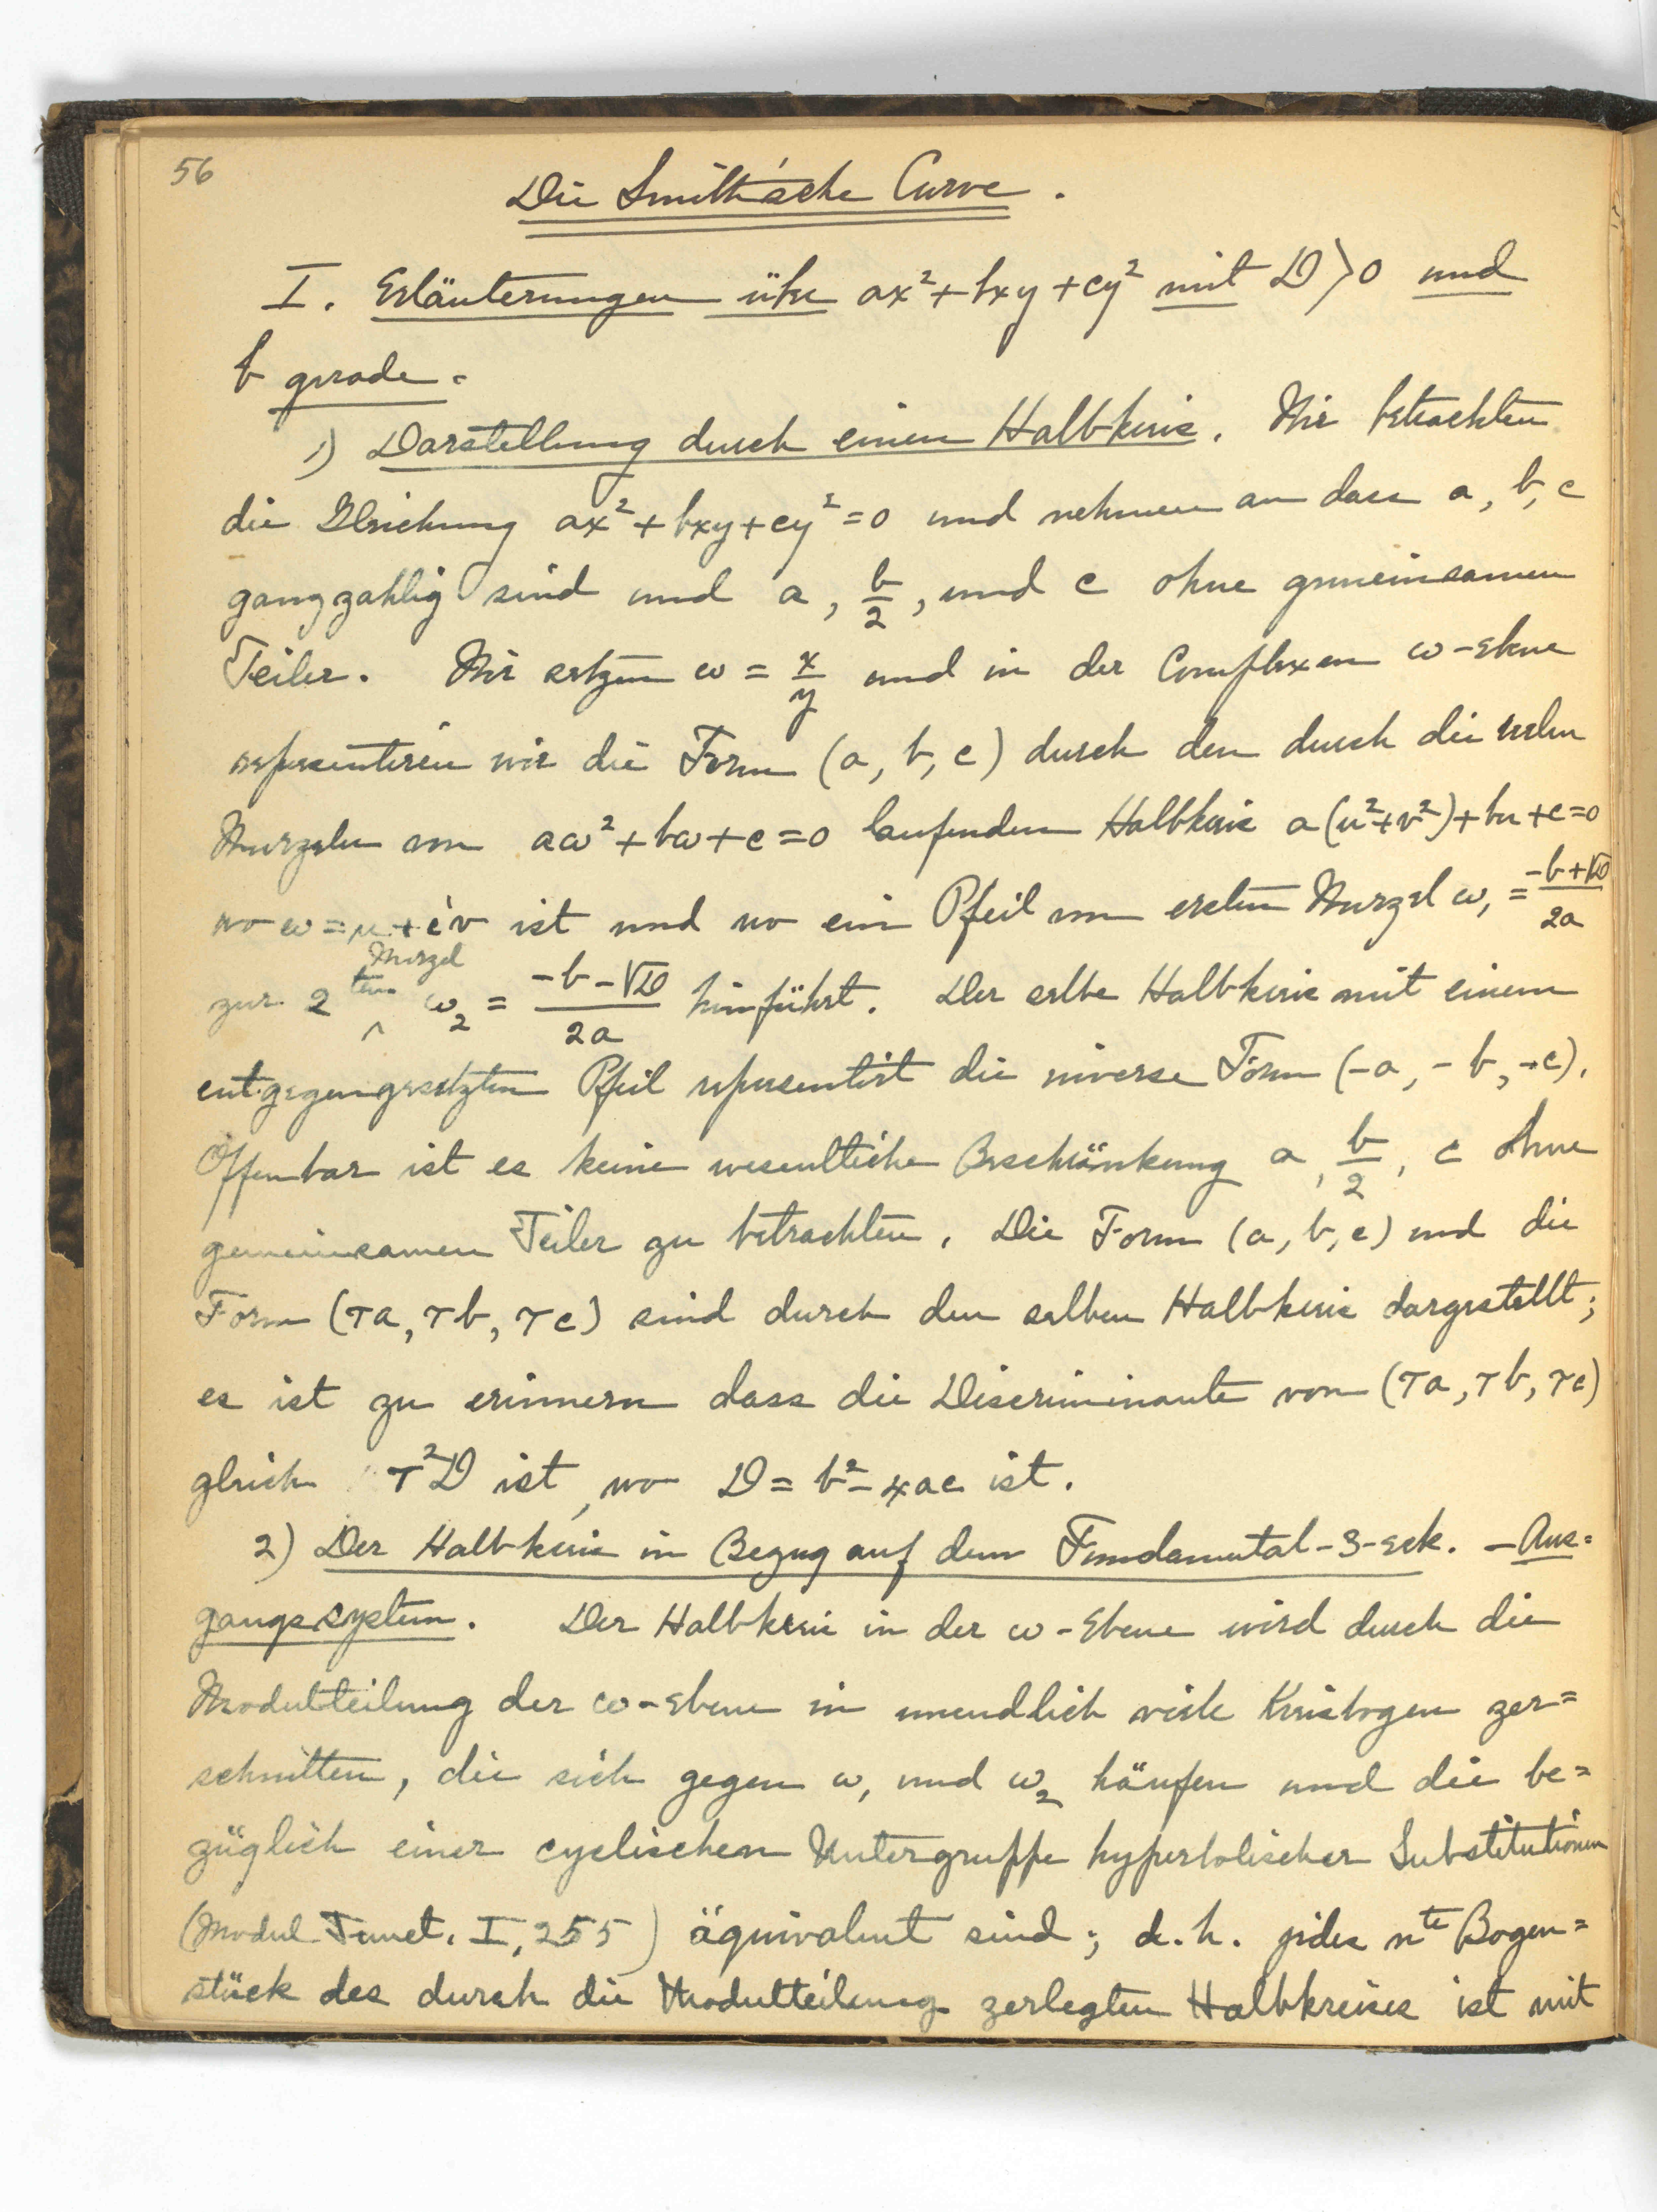 56
Die Smith'sche Curve.
I. Erläuterungen über ax²+bxy+cy² mit D>0 und
b gerade.
1) Darstellung durch einen Halbkreis. Wir betrachten
die Gleichung ax²+bxy+cy²=0 und nehmen an dass a, b, c
ganzzahlig sind und a, b/2, und c ohne gemeinsamen
Teiler. Wir setzen ω = x/y und in der Complexen ω-Ebene
representiren wir die Form (a, b, c) durch den durch die reelen
Wurzeln von aω²+bω+c=0 laufenden Halbkreis a(u²+v²)+bu+c=0
wo ω=u+iv ist und wo ein Pfeil von ersten Wurzel ω₁ = (-b+√D)/2a
zur 2ten Wurzel ω₂ = (-b-√D)/2a hinführt. Der selbe Halbkreis mit einem
entgegengesetzten Pfeil representirt die inverse Form (-a, -b, -c).
Offenbar ist es keine wesentliche Beschränkung a, b/2, c ohne
gemeinsamen Teiler zu betrachten. Die Form (a, b, c) und die
Form (τa, τb, τc) sind durch den selben Halbkreis dargestellt;
es ist zu erinnern dass die Discriminante von (τa, τb, τc)
gleich τ²D ist, wo D = b²-4ac ist.
2) Der Halbkreis in Bezug auf dem Fundamental-3-eck. – Aus=
gangssystem. Der Halbkreis in der ω-Ebene wird durch die
Modulteilung der ω-Ebene in unendlich viele Kreisbogen zer=
schnitten, die sich gegen ω₁ und ω₂ häufen und die be=
züglich einer cyclischen Untergruppe hyperbolischer Substitutionen
(Modul Funct. I, 255) äquivalent sind; d.h. jedes nte Bogen=
stück des durch die Modulteilung zerlegten Halbkreises ist mit